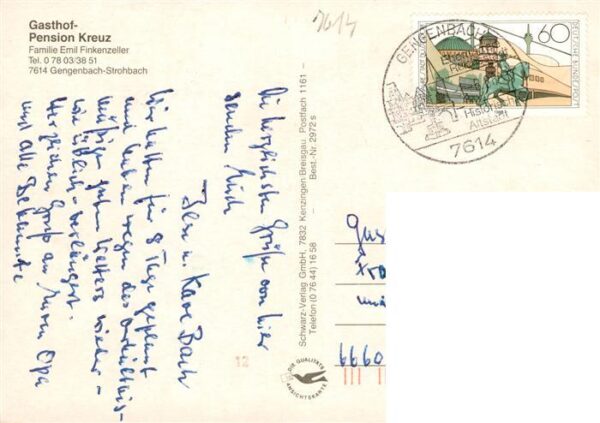 Gasthof-
Pension Kreuz
Familie Emil Finkenzeller
Tel. 0 78 03/38 51
7614 Gengenbach-Strohbach
7614
GENGENBACH
Historische
Altstadt
7614
60
DEUTSCHE BUNDESPOST
Die herzlichsten Grüße von hier
senden Euch
Karl Bach
Wir hatten für 8 Tage geplant
und haben wegen des
guten Wetters wieder –
wie üblich – verlängert.
Herzlichen Gruß an Euren Opa
und alle Bekannte
Schwarz-Verlag GmbH, 7832 Kenzingen Breisgau. Postfach 1161 –
Telefon (0 76 44) 16 58 – Best.-Nr. 2972 s
12
DIE QUALITÄTS
ANSICHTSKARTE
6660